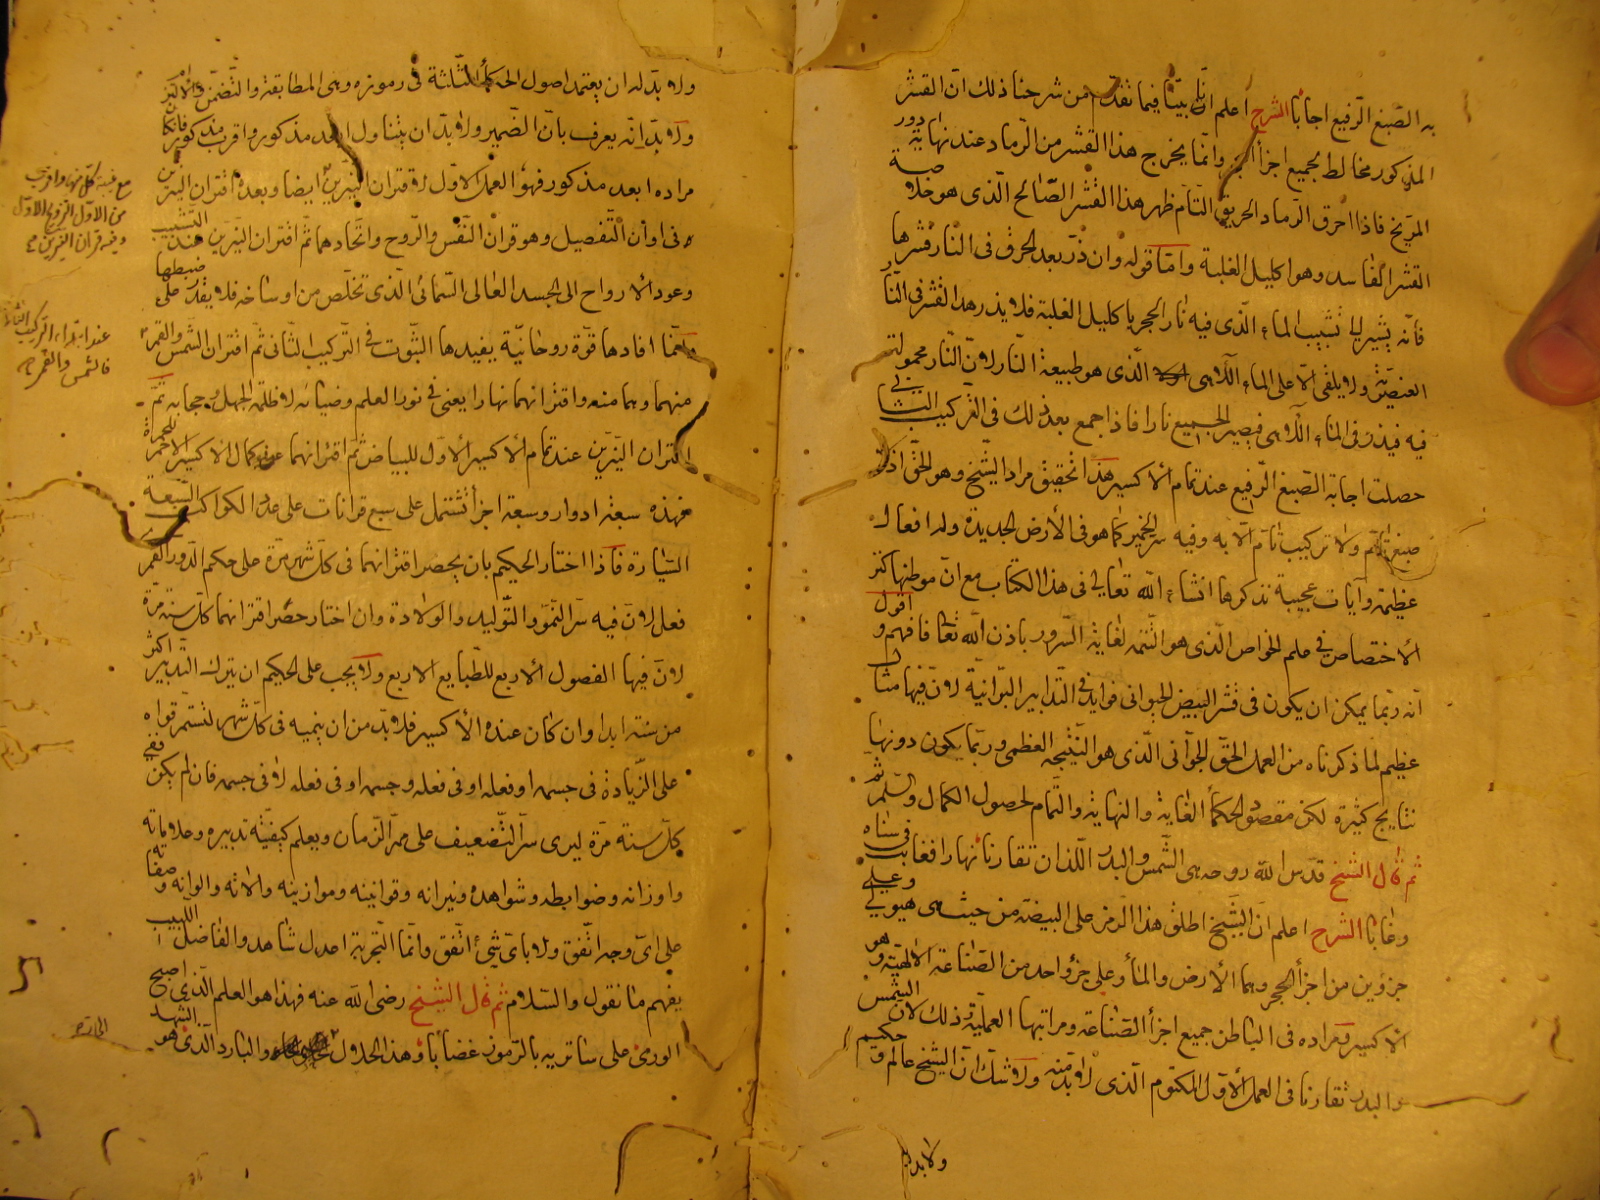 به الصّبغ الرّفيع اجابا الشرح اعلم انّا بيّنّا فيما تقدّم من شرحنا ذلك انّ القشر
المذكور مخالط بجميع اجزأ الحجر وانّما يخرج هذا القشر من الرّماد عند نهاية دور
المرّيخ فاذا احرق الرّماد الحريق التّام ظهر هذا القشر الصّالح الّذى هو خلاصة
القشر الفاسد وهو اكليل الغلبة وامّا قوله وان ذرّ بعد الحرق فى النّار قشرها
فأنّه يشير الى تشبيب الماء الّذى فيه نار الحجر باكليل الغلبة فلا يذر هذا القشر فى النّار
العنصريّة ولا يلقى الّا على الماء الآلهى الّذى هو طبيعة النّار لانّ النّار محمولة
فيه فيذر فى الماء الآلهى فيصير الجميع نارا فاذا جمع بعد ذلك فى التّركيب الثّانى
حصلت اجابة الصّبغ الرّفيع عند تمام الأكسير هذا تحقيق مراد الشّيخ وهو الحقّ اذ لا
صبغ يتمّ ولا تركيب تامّ الّا به وفيه سرّ الخمير كما هو فى الأرض الجديدة وله افعال
عظيمة وآيات عجيبة نذكرها انشاء الله تعالى فى هذا الكتاب مع انّ موطنها كنز
الأختصاص فى علم الخواص الّذى هو التّتمة لغاية السّرور باذن الله تعالى فافهم واقول
انّه ربّما يمكن ان يكون فى قشر البيض الحيوانى فوايد فى التّدابير البرّانيّة لانّ فيها مثالا
عظيم لما ذكرناه من العمل الحقّ الجوّانى الّذى هو النّتيجه العظمى وربّما يكون دونها
نتايج كثيرة لكن مقصود الحكمأ الغاية والنهاية والتّمام لحصول الكمال والسّلم
ثم قال الشيخ قدّس الله روحه هى الشّمس والبدر اللّذان تقارنا نهارا فغابت فى سناه
وغابا الشرح اعلم انّ الشّيخ اطلق هذا الرّمز على البيضة من حيث هى هيولى وعلى
جزؤين من اجزأ الحجر وهما الأرض والمأ وعلى جزؤ واحد من الصّناعة الالهيّة وهو
الاكسير ومراده فى الباطن جميع اجزأ الصّناعة ومراتبها العمليّة وذلك لانّ الشّمس
والبدر تقارنا فى العمل الأوّل المكتوم الّذى لا بدّ منه ولا شك انّ الشيخ عالم وحكيم
ولا بدله
ولا بدّ له ان يعتمد اصول الحكمأ الثّلثة فى رموزه وهى المطابقة والتّضمّن والألتزام
ولا بدّ انّه يعرف بانّ الضّمير لا بدّ ان يتناول ابعد مذكور واقرب مذكور فان كان
مراده ابعد مذكور فهو العمل الاوّل لاقتران النّيرين ايضا وبعده اقتران النيرين
فى اوان التّفصيل وهو قران النّفس والرّوح واتّحادهما ثمّ اقتران النيرين عند التشبيب
وعود الأرواح الى الجسد العالى السّمائى الّذى تخلّص من اوساخه فلا يقدر على ضبطها
ممّا افادها قوّة روحانيّة يفيدها الثّبوت فى التّركيب الثّانى ثمّ اقتران الشّمس والقمر
منهما وبهما منه واقترانهما نهارا يعنى فى نور العلم وضيائه لا ظلمة الجهل وحجابه ثمّ
اقتران النيّرين عند تمام الأكسير الأوّل للبياض ثمّ اقترانهما عند كمال الاكسير الاحمر للحمرة
فهذه سبعة ادوار وسبعة اجزأ تشتمل على سبع قرانات على عدد الكواكب السّبعة
السّيّارة فاذا اختار الحكيم بان يحصر اقترانهما فى كلّ شهر مرّة على حكم الدّور القمرى
فعل لانّ فيه سرّ النّموّ والتّوليد والولادة وان اختار حصر اقترانهما كلّ سنة مرّة
لانّ فيها الفصول الأربع للطّبايع الاربع ولا يجب على الحكيم ان يترك التدبير اكثر
من سنة ابدا وان كان عنده الأكسير فلا بدّ من ان ينميه فى كلّ شهر لتستمرّ قواه
على الزّيادة فى جسمه او فعله او فى فعله وجسمه او فى فعله لا فى جسمه فان لم يكن ففى
كلّ سنة مرّة ليرى سرّ التّضعيف على ممرّ الزّمان ويعلم كيفيّة تدبيره وعلاماته
واوزانه وضوابطه وشواهده ونيرانه وقوانينه وموازينه والاته والوانه وصفاته
على اىّ وجه اتّفق ولا باىّ شئ اتّفق وانّما التّجربة اعدل شاهد والفاضل اللّبيب
يفهم ما نقول والسّلام ثم قال الشيخ رضى الله عنه فهذا هو العلم الّذى اصبح
الورى على سائريه بالرّموز غضابا وهذا الحلول والبارد الّذى هو الشهد
مع غيبة كل منهما واقرب
من الاوّل الزوج الاوّل
وفيه قران النيّرين
عند ابتداء التركيب الثانى
فالشمس والقمر
الحار